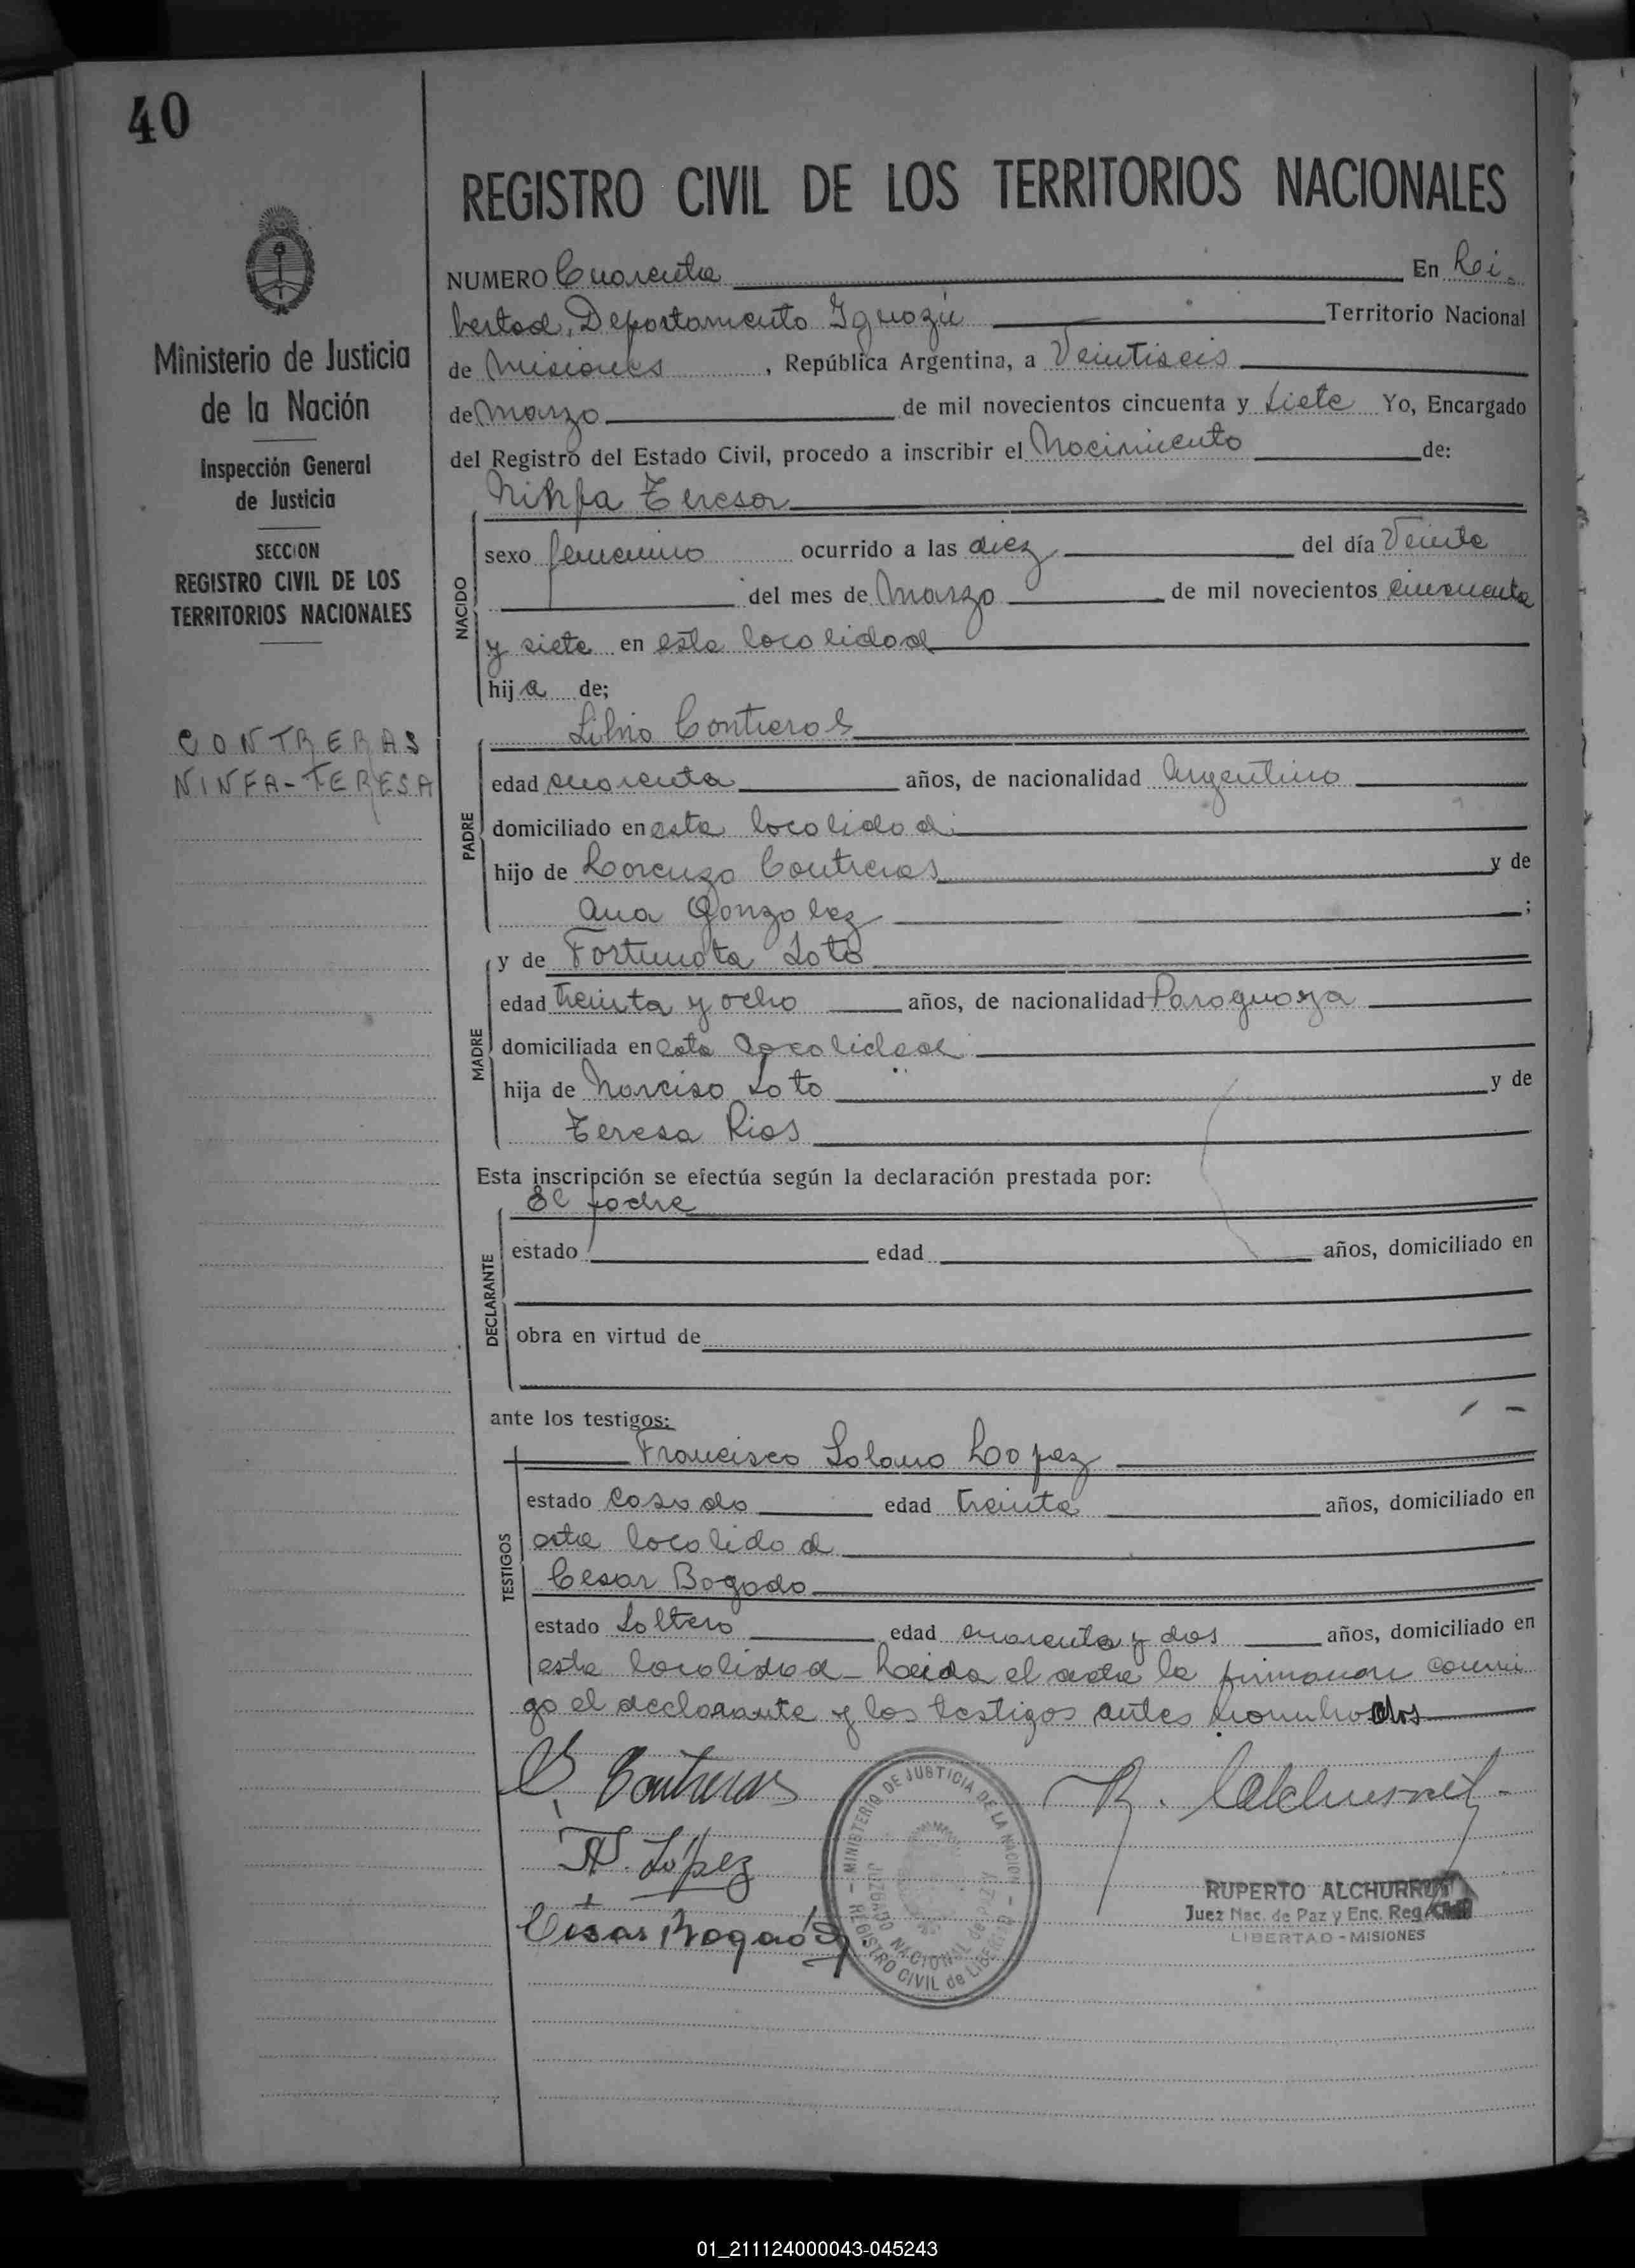 40
Ministerio de Justicia
de la Nación
Inspección General
de Justicia
SECCION
REGISTRO CIVIL DE LOS
TERRITORIOS NACIONALES
CONTRERAS
NINFA-TERESA
REGISTRO CIVIL DE LOS TERRITORIOS NACIONALES
NUMERO Cuarenta En Li
bertad, Departamento Iguazú Territorio Nacional
de Misiones, República Argentina, a Veintiseis
de Marzo de mil novecientos cincuenta y Siete Yo, Encargado
del Registro del Estado Civil, procedo a inscribir el Nacimiento de:
NACIDO
Ninfa Teresa
sexo femenino ocurrido a las diez del día Veinte
del mes de Marzo de mil novecientos cincuenta
y siete en esta localidad
hija de;
PADRE
Silvio Contreras
edad cuarenta años, de nacionalidad Argentino
domiciliado en esta localidad
hijo de Lorenzo Contreras y de
Ana Gonzalez ;
MADRE
y de Fortunata Soto
edad treinta y ocho años, de nacionalidad Paraguaya
domiciliada en esta localidad
hija de Narciso Soto y de
Teresa Rios
Esta inscripción se efectúa según la declaración prestada por:
DECLARANTE
El padre
estado edad años, domiciliado en
obra en virtud de
ante los testigos:
TESTIGOS
Francisco Solano Lopez
estado Casado edad treinta años, domiciliado en
esta localidad
Cesar Bogado
estado Soltero edad cuarenta y dos años, domiciliado en
esta localidad - Leida el acta la firmaron conmi
go el declarante y los testigos antes nombrados
S. Contreras
F S. López
César Bogado
MINISTERIO DE JUSTICIA DE LA NACION
JUZGADO NACIONAL de PAZ Y
REGISTRO CIVIL de LIBERTAD
R. Alchurrut
RUPERTO ALCHURRUT
Juez Nac. de Paz y Enc. Reg. Civil
LIBERTAD - MISIONES
01_211124000043-045243